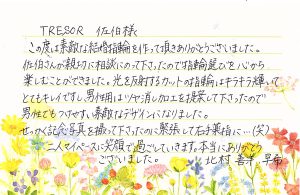 TRESOR 佐伯様
この度は素敵な結婚指輪を作って頂きありがとうございました。
佐伯さんが親身に相談にのって下さったので指輪選びを心から
楽しむことができました。光を反射するカットの指輪はキラキラ輝いて
とてもキレイですし、男性用はツヤ消し加工を提案して下さったので
男性でもつけやすい素敵なデザインになりました。
せっかく記念写真を撮って下さったのに緊張して右手薬指に…(笑)
二人マイペースに笑顔で過ごしていきます。本当にありがとう
ございました。 北村